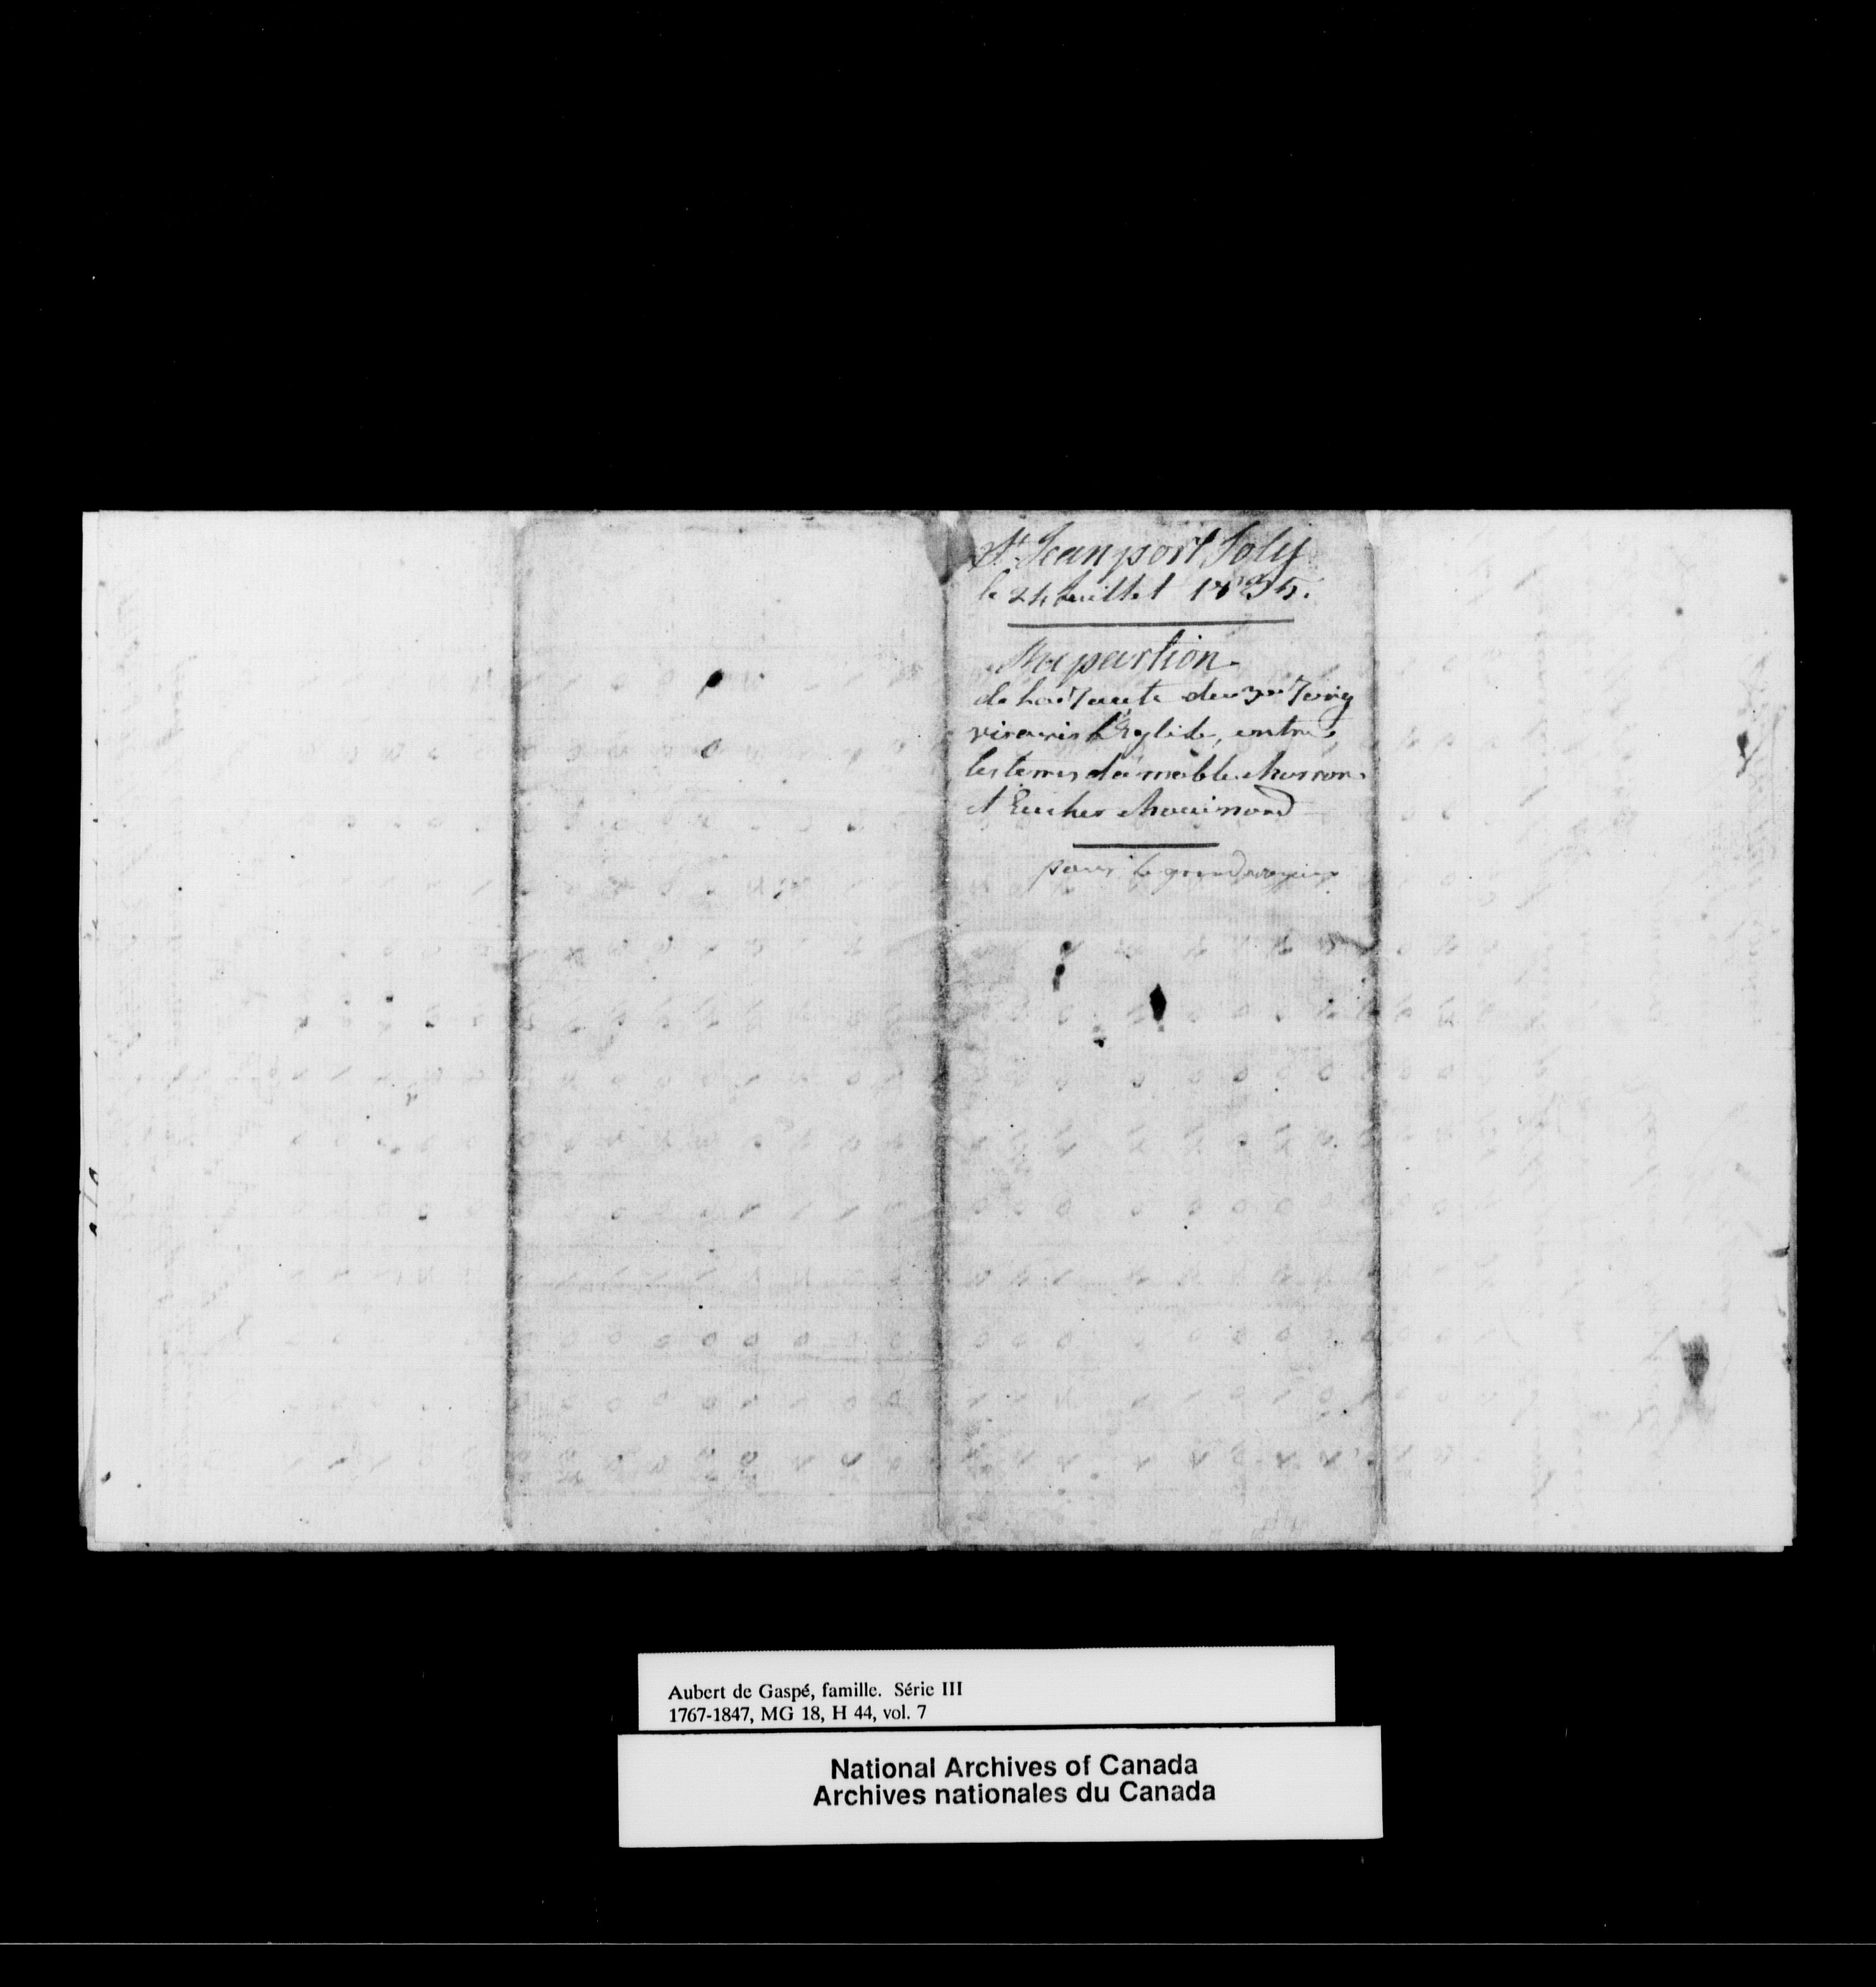 St. Jean port Joly
le 24 Juillet 1835.
Repartion
de la route du 3me rang
vis avis l'Eglise, entre
les terres damable
et Eucher Chouinard
pour le grand voyer
Aubert de Gaspé, famille. Série III
1767-1847, MG 18, H 44, vol. 7
National Archives of Canada
Archives nationales du Canada